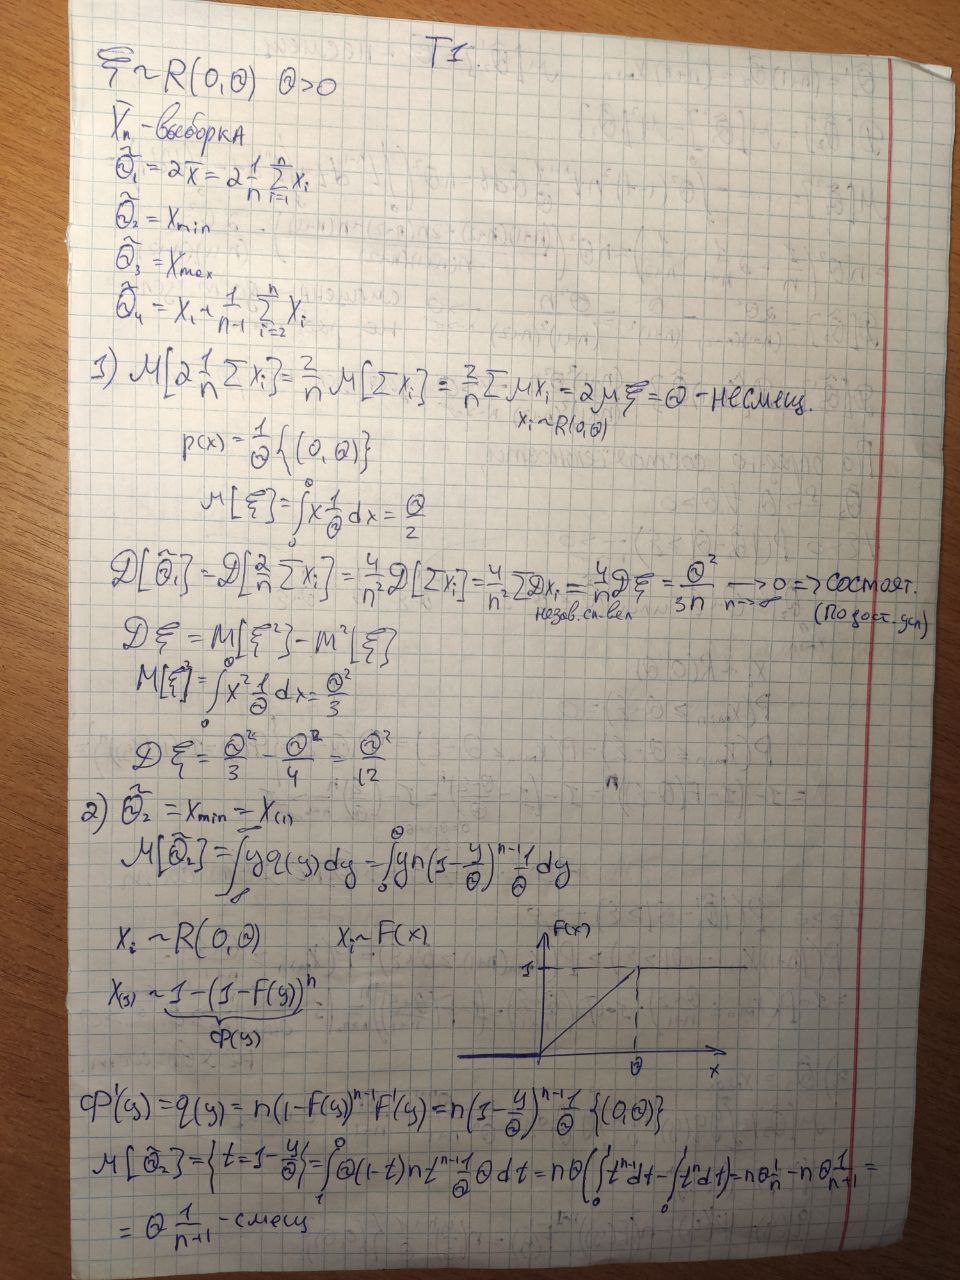 T1.
ξ ~ R(0,Θ) Θ>0
X̄n - выборка
Θ̃₁ = 2x̄ = 2 1/n Σⁿᵢ₌₁ xᵢ
Θ̃₂ = xmin
Θ̃₃ = xmax
Θ̃₄ = x₁ + 1/(n-1) Σⁿᵢ₌₂ xᵢ
1) M[2 1/n Σxᵢ] = 2/n M[Σxᵢ] = 2/n Σ Mxᵢ = 2Mξ = Θ - несмещ.
xᵢ ~ R(0,Θ)
p(x) = 1/Θ {(0,Θ)}
M[ξ] = ∫₀^Θ x 1/Θ dx = Θ/2
D[Θ̃₁] = D[2/n Σxᵢ] = 4/n² D[Σxᵢ] = 4/n² ΣDxᵢ = 4/n Dξ = Θ²/3n →(n→∞) 0 => состоят.
незав. сл. вел (по дост. усл)
Dξ = M[ξ²] - M²[ξ]
M[ξ²] = ∫₀^Θ x² 1/Θ dx = Θ²/3
Dξ = Θ²/3 - Θ²/4 = Θ²/12
2) Θ̃₂ = xmin = x(1)
M[Θ̃₂] = ∫ y q(y) dy = ∫₀^Θ y n (1 - y/Θ)ⁿ⁻¹ 1/Θ dy
xᵢ ~ R(0,Θ) xᵢ ~ F(x)
F(x)
1
x(1) ~ 1 - (1 - F(y))ⁿ
Φ(y)
Θ x
Φ'(y) = q(y) = n(1 - F(y))ⁿ⁻¹ F'(y) = n(1 - y/Θ)ⁿ⁻¹ 1/Θ {(0,Θ)}
M[Θ̃₂] = {t = 1 - y/Θ} = ∫₁⁰ Θ(1-t) n tⁿ⁻¹ 1/Θ Θ dt = nΘ(∫₀¹ tⁿ⁻¹ dt - ∫₀¹ tⁿ dt) = nΘ 1/n - nΘ 1/(n+1) =
= Θ 1/(n+1) - смещ